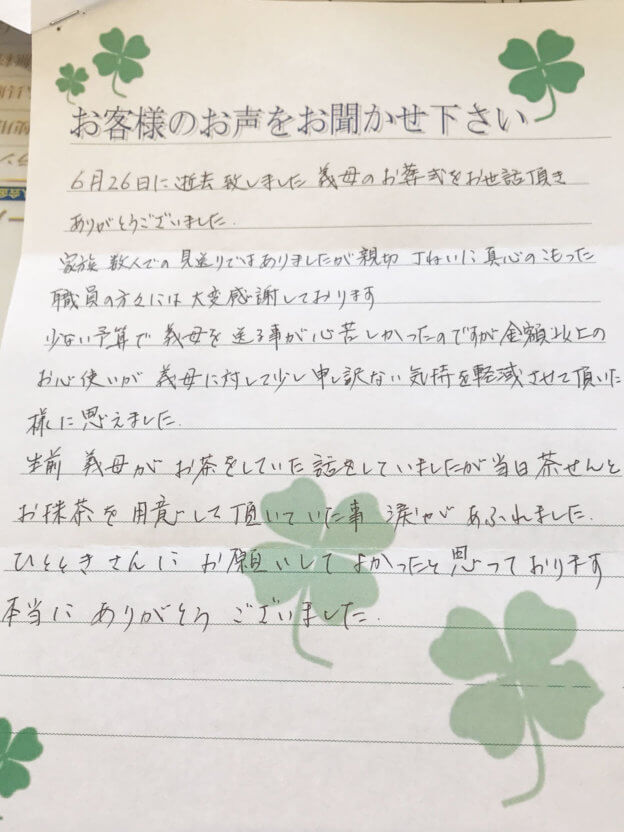 お客様のお声をお聞かせ下さい
6月26日に逝去致しました 義母のお葬式をお世話頂き
ありがとうございました.
家族 数人での 見送りではありましたが 親切 丁ねいに 真心のこもった
職員の方々には 大変感謝しております
少ない予算で 義母を 送る事が心苦しかったのですが 金額以上の
お心使いが 義母に対して少し申し訳ない気持を軽減させて頂いた
様に思えました.
生前 義母が お茶をしていた話をしていましたが 当日茶せんと
お抹茶を 用意して頂いていた事 涙があふれました.
ひとときさんに お願いして よかったと思っております
本当に ありがとう ございました.